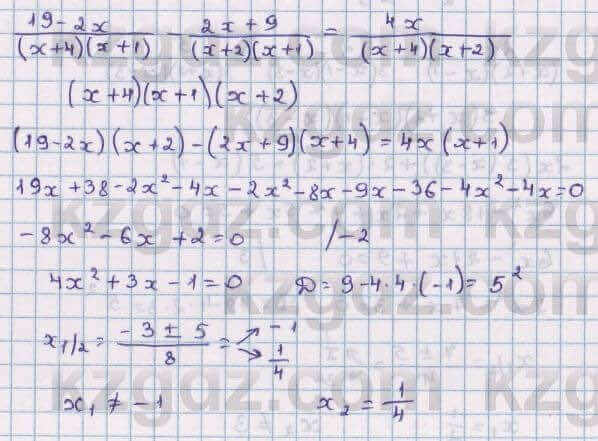 (19-2x)/((x+4)(x+1)) - (2x+9)/((x+2)(x+1)) = 4x/((x+4)(x+2))
(x+4)(x+1)(x+2)
(19-2x)(x+2)-(2x+9)(x+4)=4x(x+1)
19x+38-2x²-4x-2x²-8x-9x-36-4x²-4x=0
-8x²-6x+2=0 /-2
4x²+3x-1=0 D=9-4·4·(-1)=5²
x₁/₂ = (-3±5)/8 = ↗ -1 ↘ 1/4
x₁ ≠ -1 x₂ = 1/4
kzgdz.com